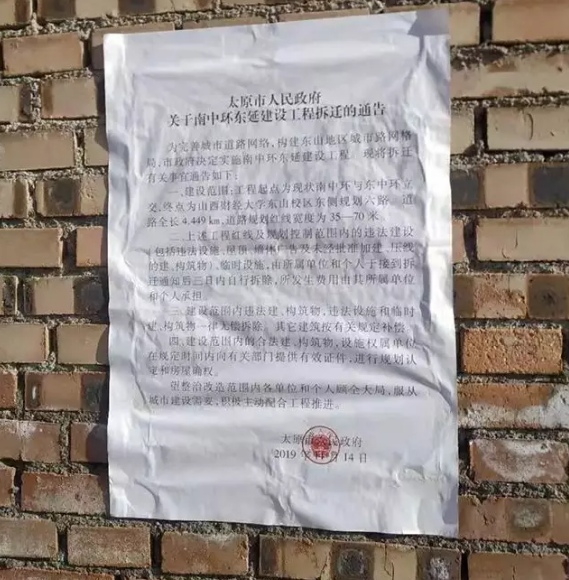 太原市人民政府
关于南中环东延建设工程拆迁的通告
为完善城市道路网络,构建东山地区城市路网格
局,市政府决定实施南中环东延建设工程。现将拆迁
有关事宜通告如下:
一、建设范围:工程起点为现状南中环与东中环立
交,终点为山西财经大学东山校区东侧规划六路。道
路全长4.449km,道路规划红线宽度为35—70米。
二、上述工程红线及规划控制范围内的违法建设
(包括违法设施、屋顶、墙体广告及未经批准加建、压线
的建、构筑物)、临时设施,由所属单位和个人于接到拆
迁通知后三日内自行拆除,所发生费用由其所属单位
和个人承担。
三、建设范围内违法建、构筑物,违法设施和临时
建、构筑物一律无偿拆除。其它建筑按有关规定补偿。
四、建设范围内的合法建、构筑物,设施权属单位
在规定时间内向有关部门提供有效证件,进行规划认
定和房屋确权。
望整治改造范围内各单位和个人顾全大局,服从
城市建设需要,积极主动配合工程推进。
太原市人民政府
2019年 月14日